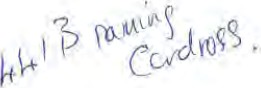 441 B naming
Cardross.